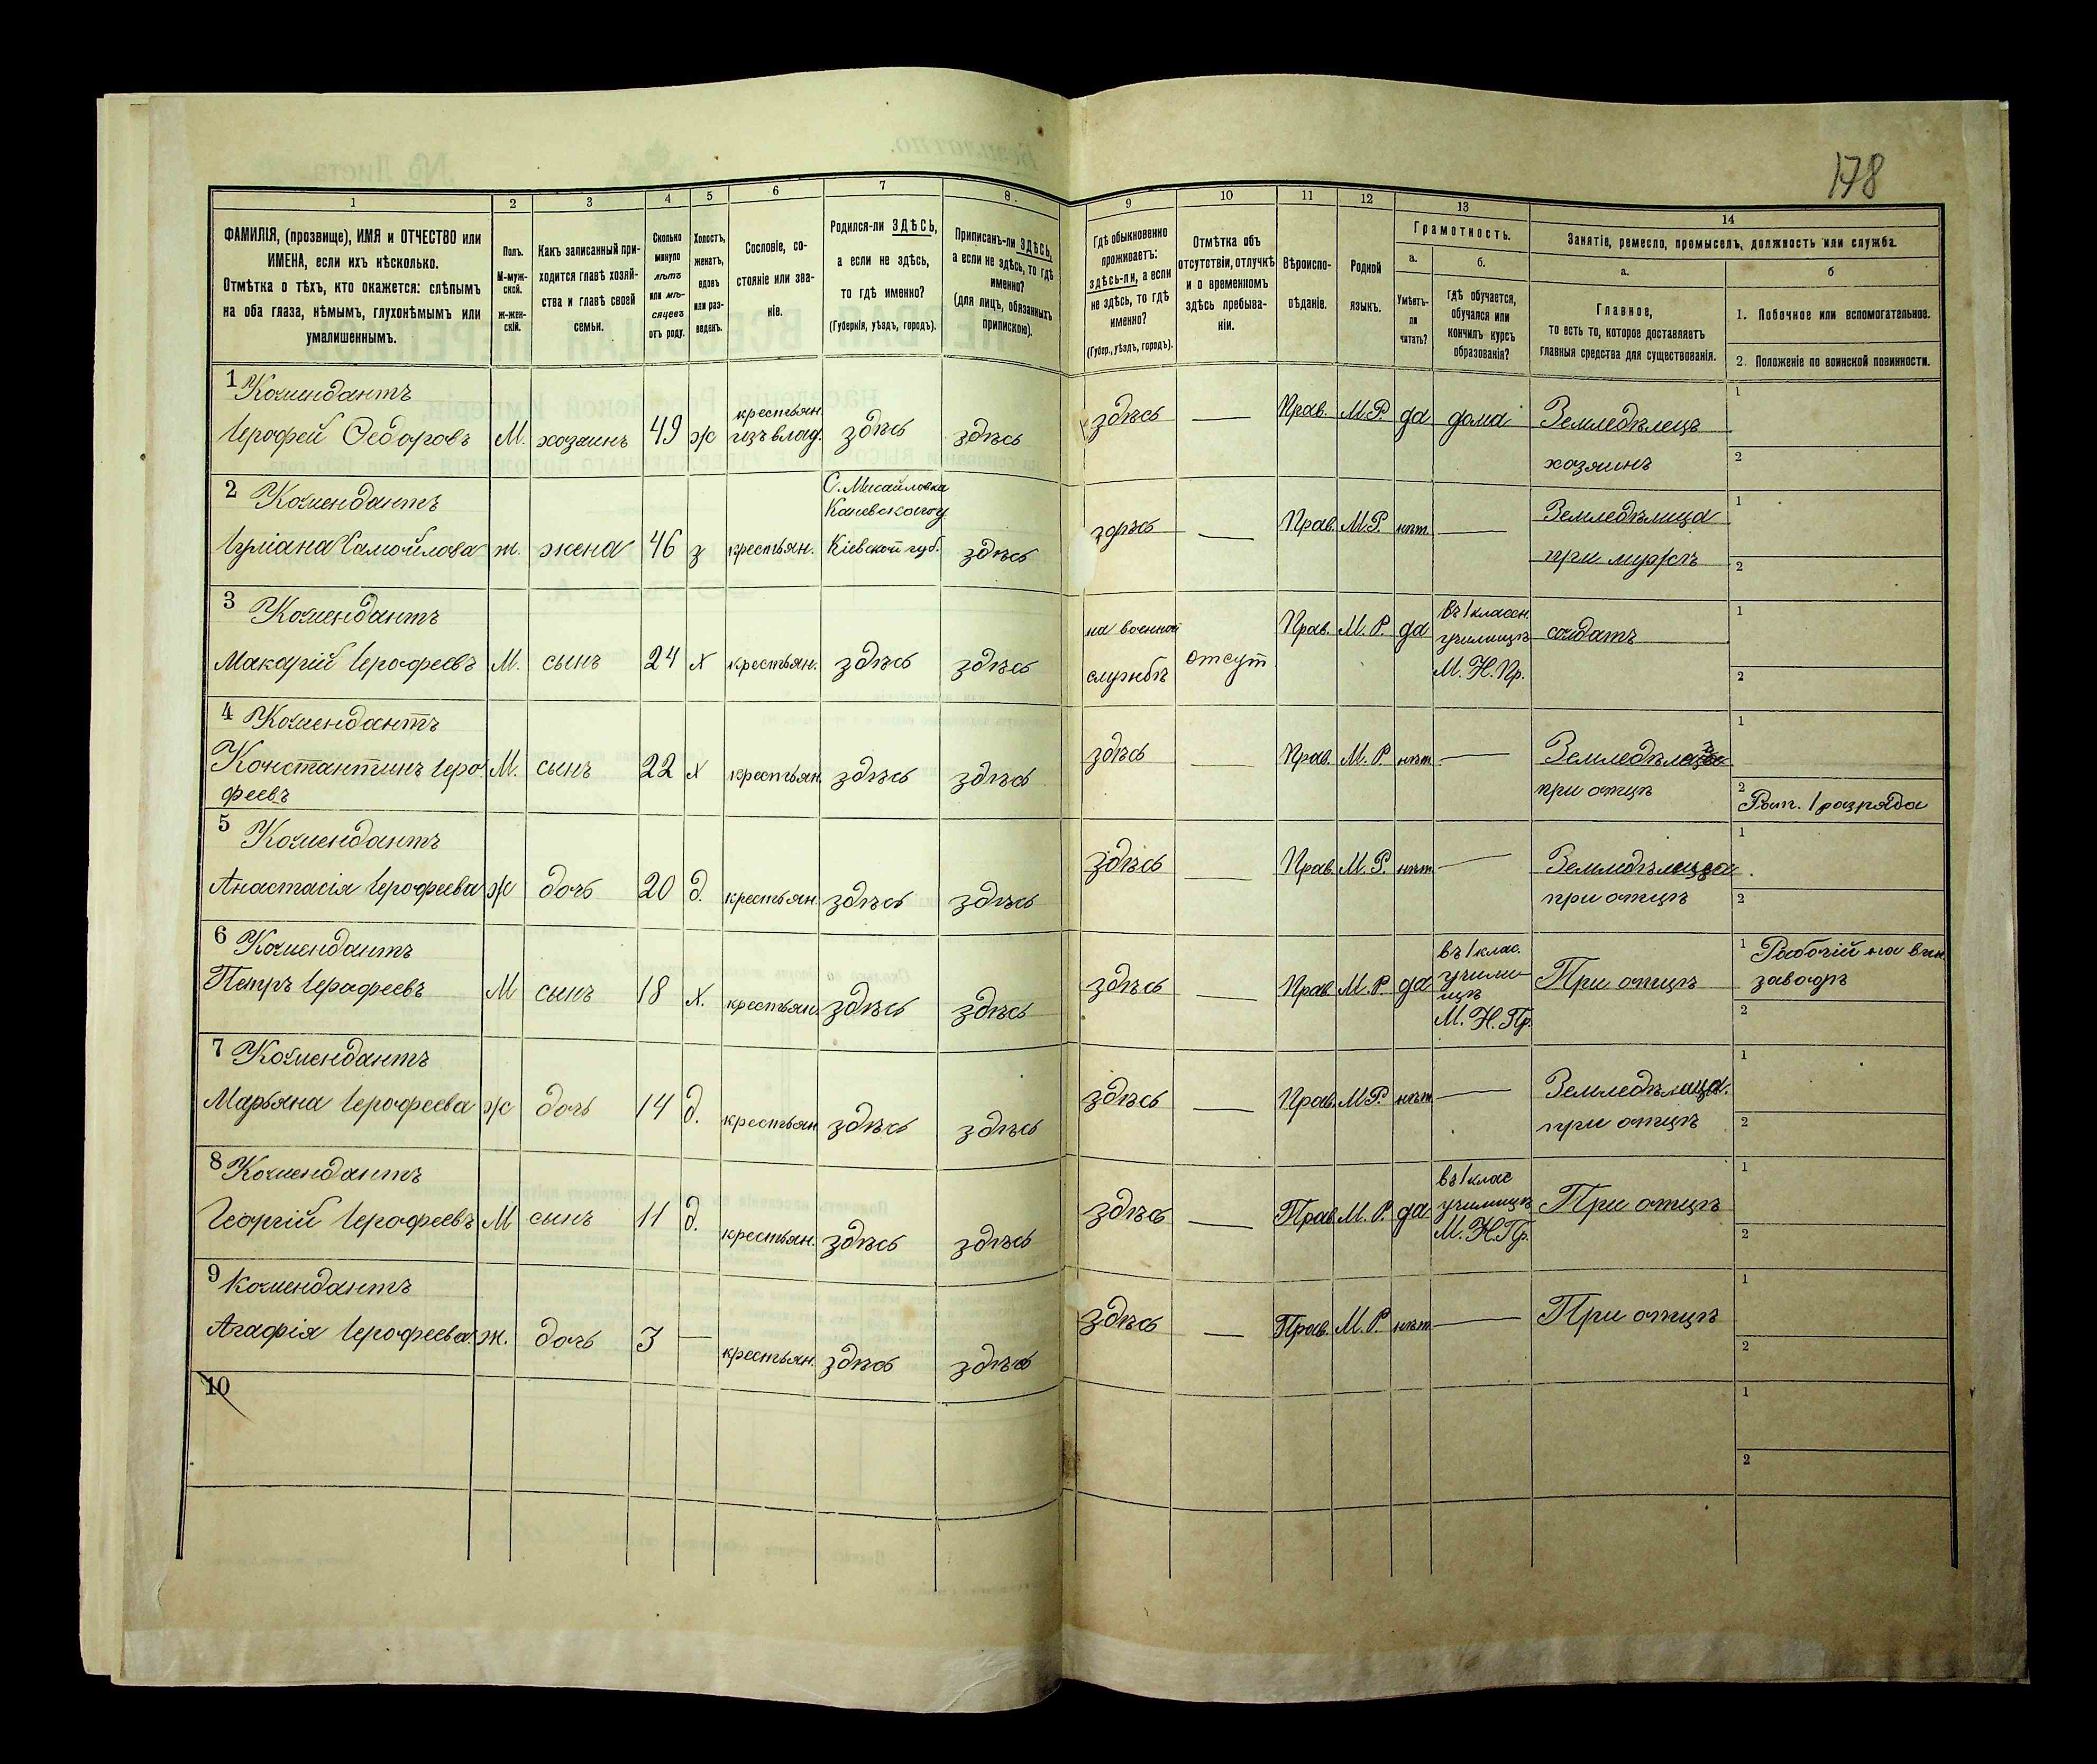 178
1
2
3
4
5
6
7
8.
9
10
11
12
13
14
ФАМИЛІЯ, (прозвище), ИМЯ и ОТЧЕСТВО или
ИМЕНА, если ихъ нѣсколько.
Отмѣтка о тѣхъ, кто окажется: слѣпымъ
на оба глаза, нѣмымъ, глухонѣмымъ или
умалишеннымъ.
Полъ.
М-муж-
ской.
ж-жен-
скій.
Какъ записанный при-
ходится главѣ хозяй-
ства и главѣ своей
семьи.
Сколько
минуло
лѣтъ
или мѣ-
сяцевъ
отъ роду.
Холостъ,
женатъ,
вдовъ
или раз-
веденъ.
Сословіе, со-
стояніе или зва-
ніе.
Родился-ли ЗДѢСЬ,
а если не здѣсь,
то гдѣ именно?
(Губернія, уѣздъ, городъ).
Приписанъ-ли ЗДѢСЬ,
а если не здѣсь, то гдѣ
именно?
(для лицъ, обязанныхъ
припискою).
Гдѣ обыкновенно
проживаетъ:
здѣсь-ли, а если
не здѣсь, то гдѣ
именно?
(Губер., уѣздъ, городъ).
Отмѣтка объ
отсутствіи, отлучкѣ
и о временномъ
здѣсь пребыва-
ніи.
Вѣроиспо-
вѣданіе.
Родной
языкъ.
Грамотность.
а.
Умѣетъ-
ли
читать?
б.
гдѣ обучается,
обучался или
кончилъ курсъ
образованія?
Занятіе, ремесло, промыселъ, должность или служба.
а.
Главное,
то есть то, которое доставляетъ
главныя средства для существованія.
б
1. Побочное или вспомогательное.
2. Положеніе по воинской повинности.
1 Комендантъ
Іерофей Ѳедоровъ М. хозяинъ 49 ж крестьян. изъ влад. здѣсь здѣсь здѣсь — Прав. М.Р. да дома Земледѣлецъ
хозяинъ
1
2
2 Комендантъ
С. Мисайловка
Каневского у
Самойлова ж. жена 46 з крестьян. Кіевской губ. здѣсь здѣсь — Прав. М.Р. нѣт — Земледѣлица
при мужѣ
1
2
3 Комендантъ
Макарій Іерофеевъ М. сынъ 24 х крестьян. здѣсь здѣсь на военной службѣ отсут. Прав. М.Р. да въ 1 классн.
училищѣ
М.Н.Пр.
солдатъ
1
2
4 Комендантъ
Константинъ Іеро-
феевъ М. сынъ 22 х крестьян. здѣсь здѣсь здѣсь — Прав. М.Р. нѣт —
при отцѣ
1
2 Рат. 1 разряда
5 Комендантъ
Анастасія Іерофеева ж дочь 20 д. крестьян. здѣсь здѣсь здѣсь — Прав. М.Р. нѣт — Земледѣлица
при отцѣ
1
2
6 Комендантъ
Петръ Іерофеевъ М сынъ 18 х. крестьян. здѣсь здѣсь здѣсь — Прав. М.Р. да въ 1 клас.
учили-
щѣ
М.Н.Пр.
При отцѣ
1 Рабочій на вин.
заводѣ
2
7 Комендантъ
Марьяна Іерофеева ж дочь 14 д. крестьян здѣсь здѣсь здѣсь — Прав. М.Р. нѣт — Земледѣлица.
при отцѣ
1
2
8 Комендантъ
Георгій Іерофеевъ М сынъ 11 д. крестьян. здѣсь здѣсь здѣсь — Прав М.Р. да въ 1 клас
училищѣ
М.Н.Пр.
При отцѣ
1
2
9 Комендантъ
Агафія Іерофеева. ж. дочь 3 — крестьян. здѣсь здѣсь здѣсь — Прав. М.Р. нѣт — При отцѣ
1
2
10
1
2